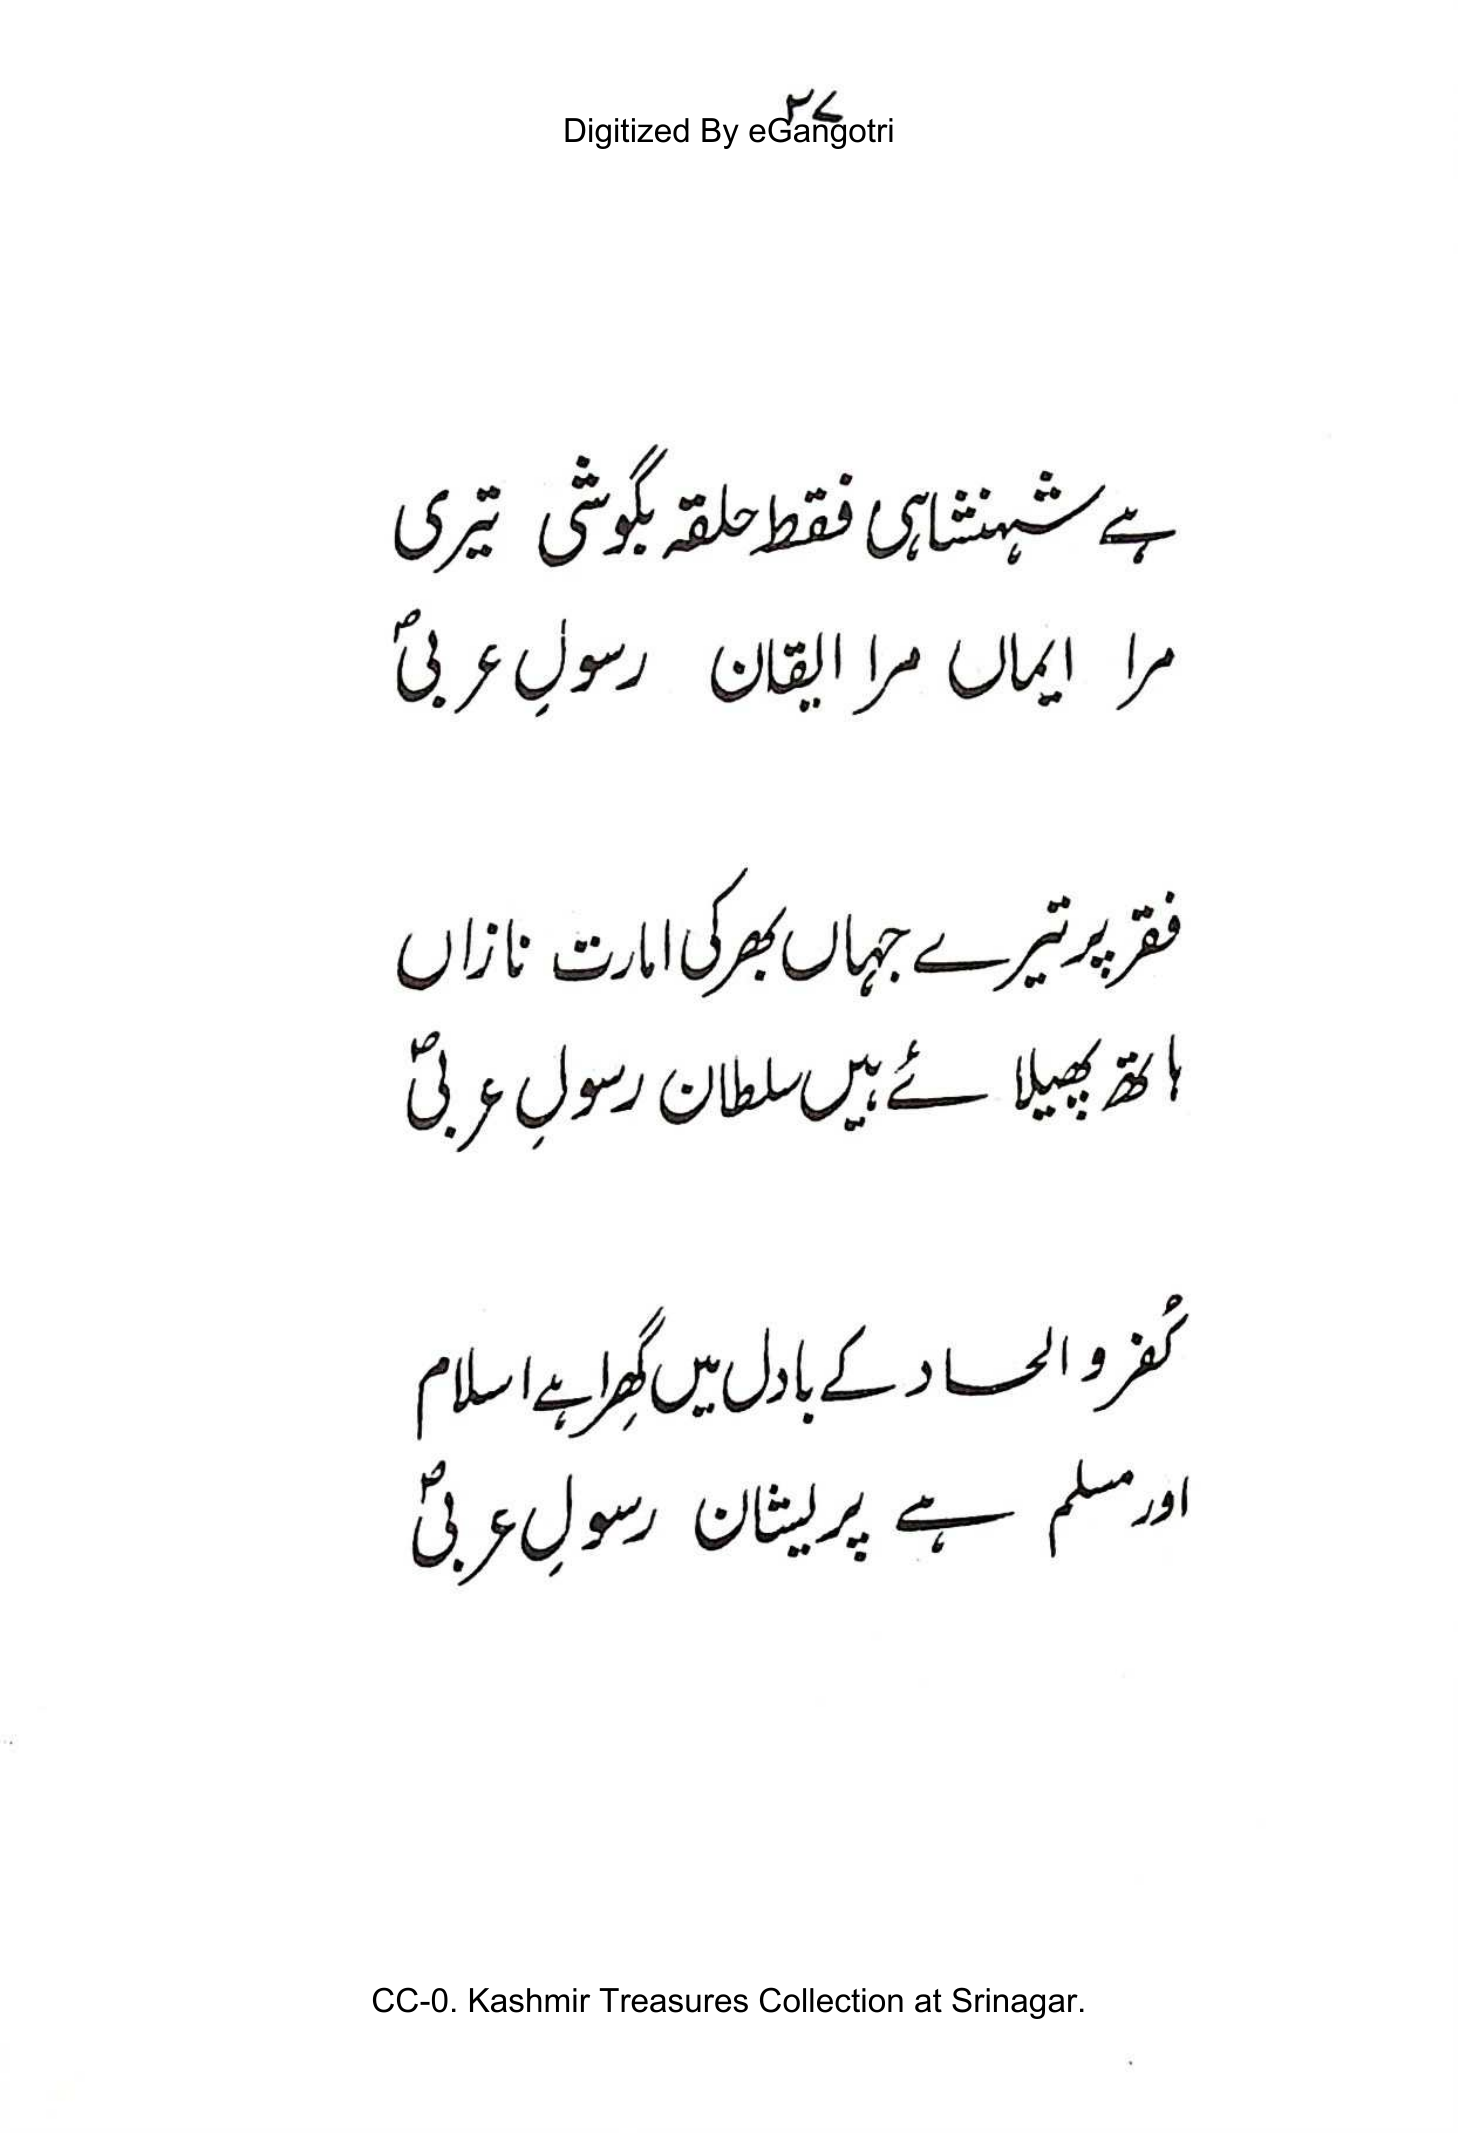 ۲۷
Digitized By eGangotri
ہے شہنشاہی فقط حلقہ بگوشی تیری
مرا ایماں مرا ایقان رسولِ عربیؐ
فقر پر تیرے جہاں بھر کی امارت نازاں
ہاتھ پھیلائے ہیں سلطان رسولِ عربیؐ
کُفر و الحاد کے بادل میں گھِرا ہے اسلام
اور مسلم ہے پریشان رسولِ عربیؐ
CC-0. Kashmir Treasures Collection at Srinagar.